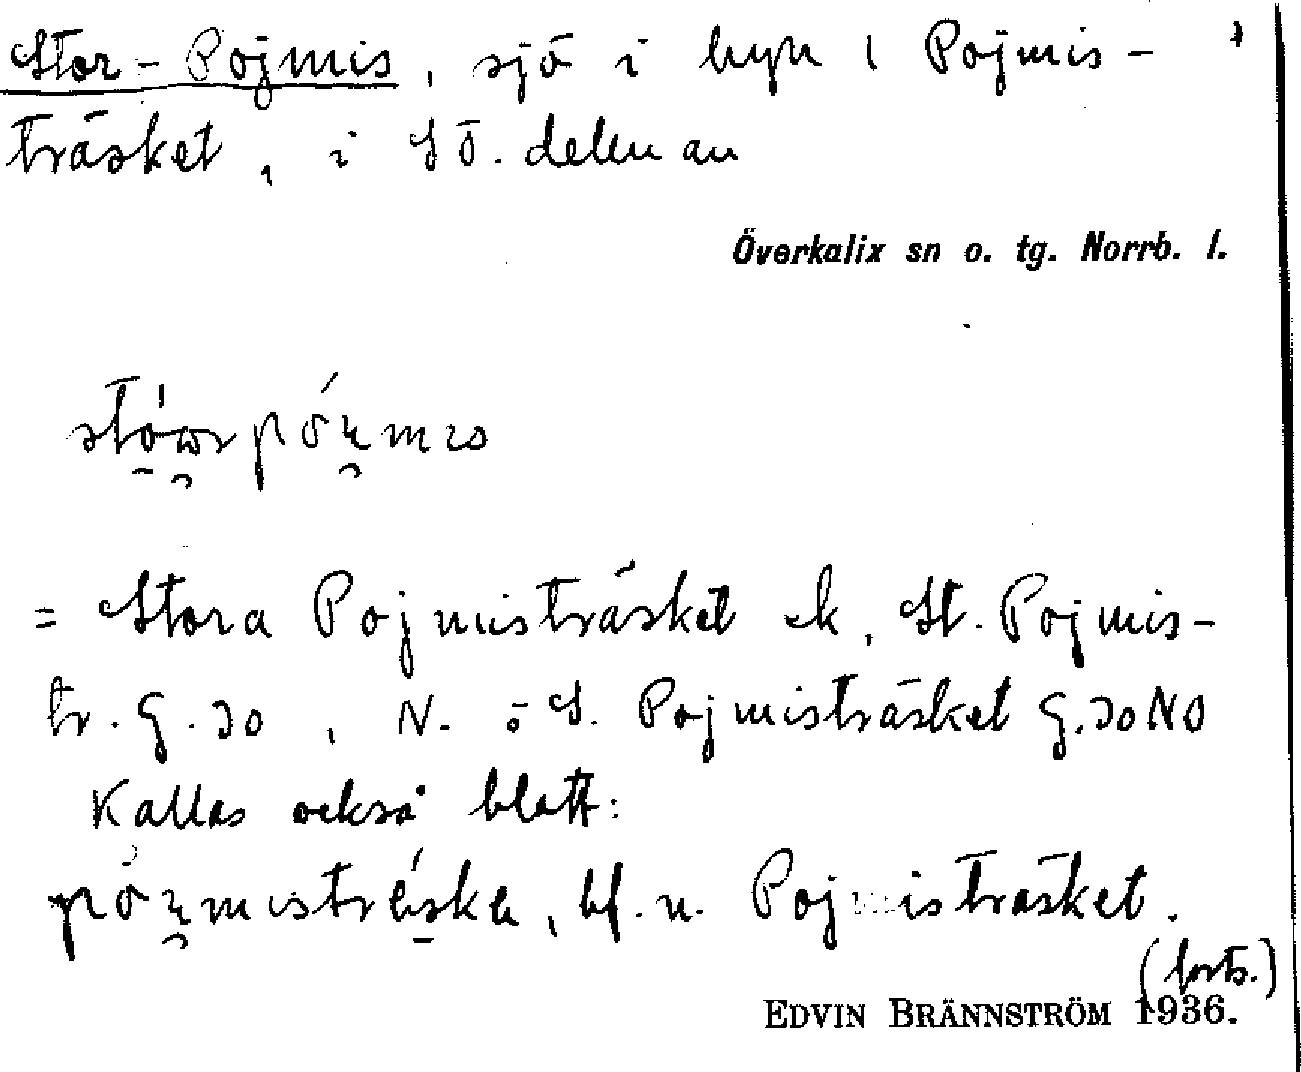 Stor-Pojmis, sjö i byn i Pojmis-
träsket, i SÖ. delen av
Överkalix sn o. tg. Norrb. l.
= Stora Pojmisträsket ek, St. Pojmis-
tr. G.30, N. o S. Pojmisträsket G.30NO
Kallas också blott:
jf. n. Pojmisträsket.
(forts.)
EDVIN BRÄNNSTRÖM 1936.